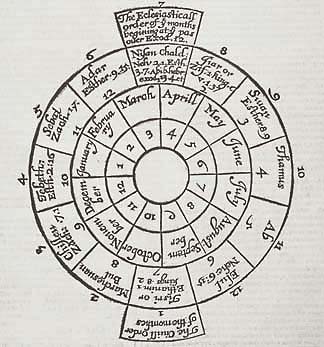 7
The Ecclesiasticall
order of y months
begining at y pas
over Exod. 12.
Nison Chald.
Neh. 2.1. Esth.
3.7. Apib hebr
exod. 13.4.
1
8
Jiar or
Zif 1 king 6
2
9
Siuan
Esther 8.9
3
10
Thamus
4
11
Ab
5
12
Elul
Nehe 6.15
6
Tisri or
Ethanim 1
king. 8.2
7
1
The Ciuill order
of the moneths
2
Marchesuan
Bul
8
3
Chisleu
Zach. 7.1.
9
4
Tebeth
Esth. 2.16
10
5
Sebat
Zach. 1.7.
11
6
Adar
Esther. 9.
12
January
Februa
ry
March
Aprill
May
June
July
August
Septem
ber
October
Nouem
ber
Decem
ber
1
2
3
4
5
6
7
8
9
10
11
12